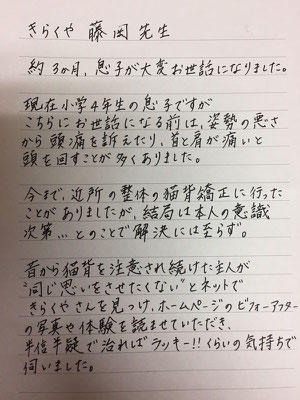 きらくや 藤岡先生
約3か月、息子が大変お世話になりました。
現在小学4年生の息子ですが
こちらにお世話になる前は、姿勢の悪さ
から頭痛を訴えたり、首と肩が痛いと
頭を回すことが多くありました。
今まで、近所の整体の猫背矯正に行った
ことがありましたが、結局は本人の意識
次第… とのことで解決には至らず。
昔から猫背を注意され続けた主人が
"同じ思いをさせたくない"とネットで
きらくやさんを見つけ、ホームページのビフォーアフター
の写真や体験を読ませていただき、
半信半疑で治ればラッキー!!くらいの気持ちで
伺いました。